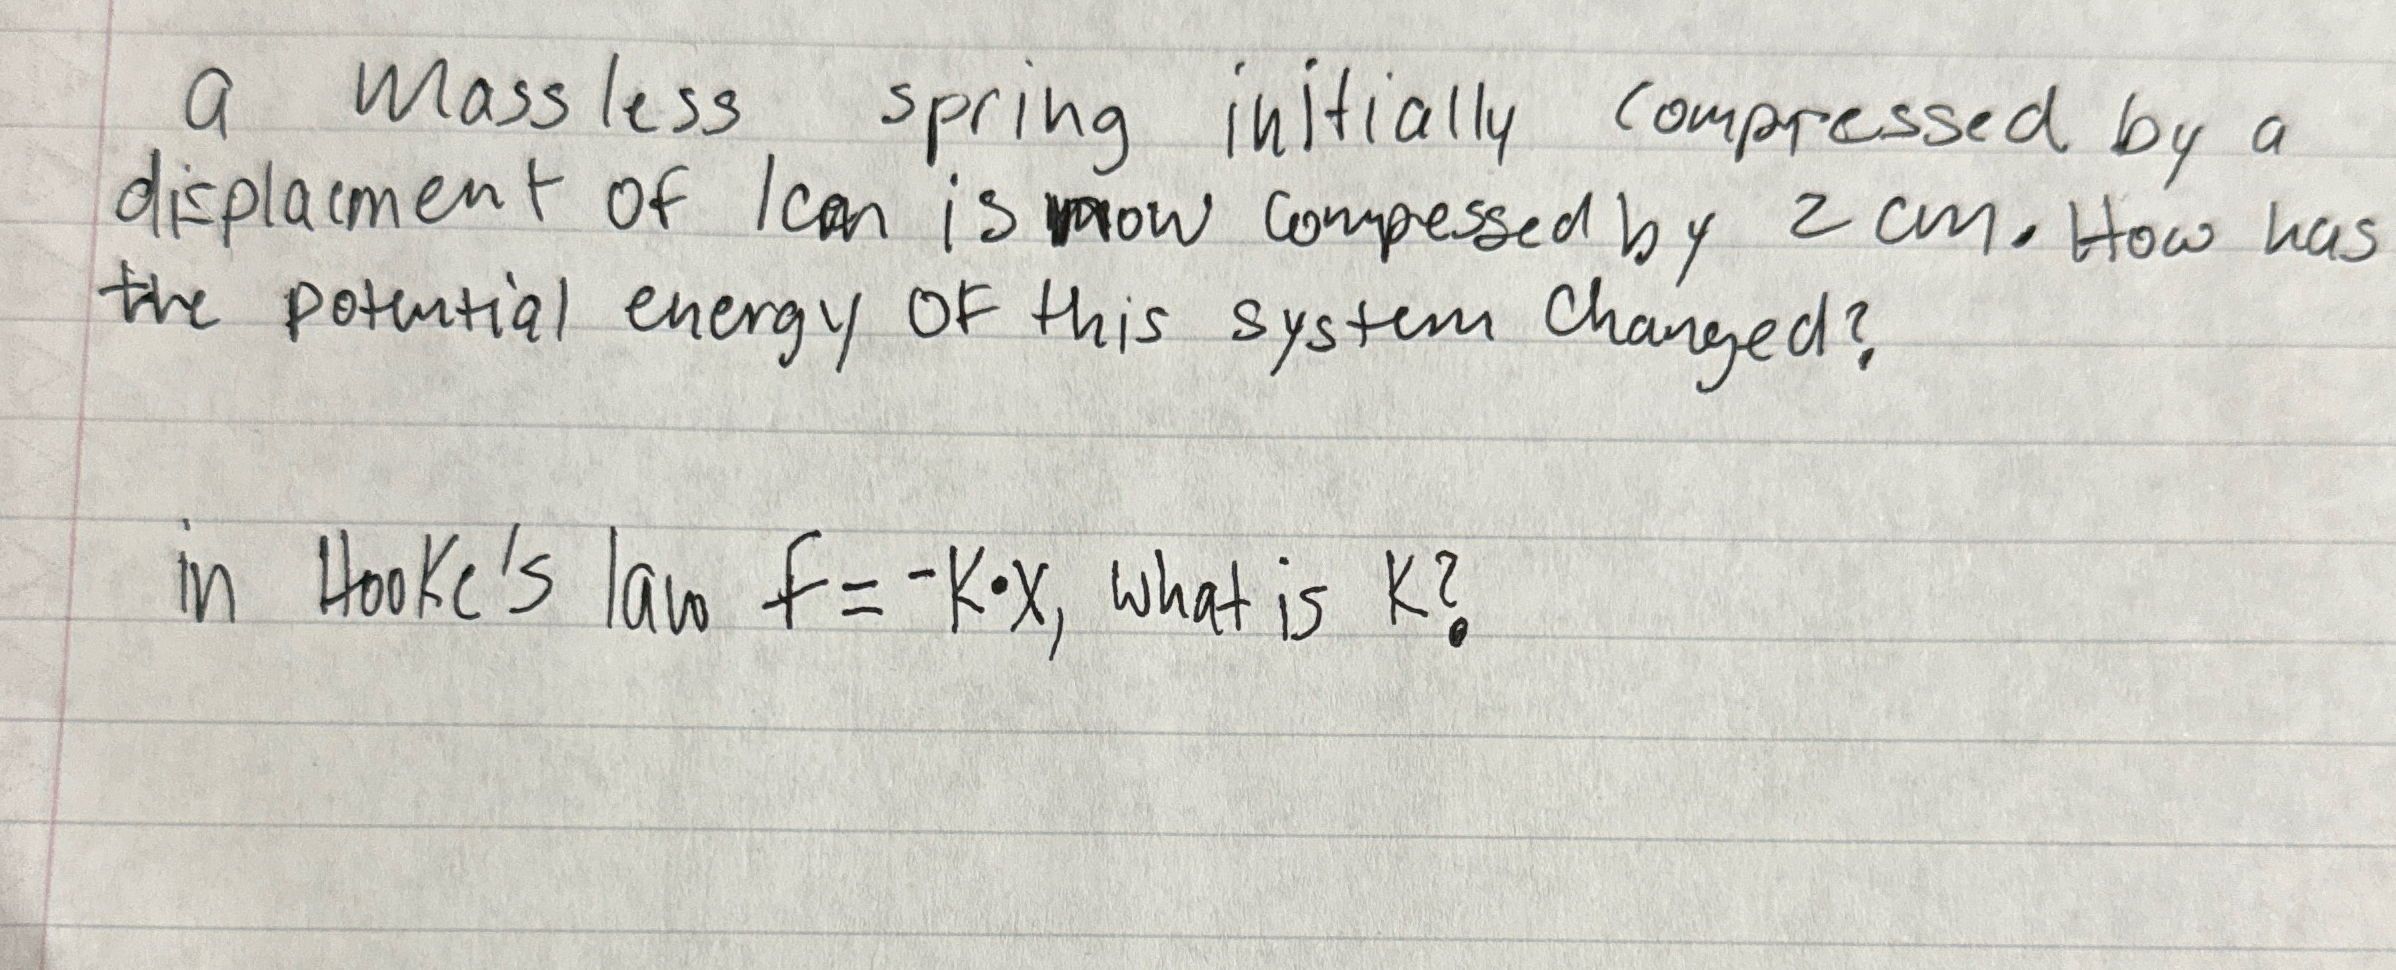 a Massless spring initially compressed by a
displacment of 1cm is now compessed by 2 cm. How has
the potential energy OF this system Changed?
in Hooke's law f = -K•X, what is K?